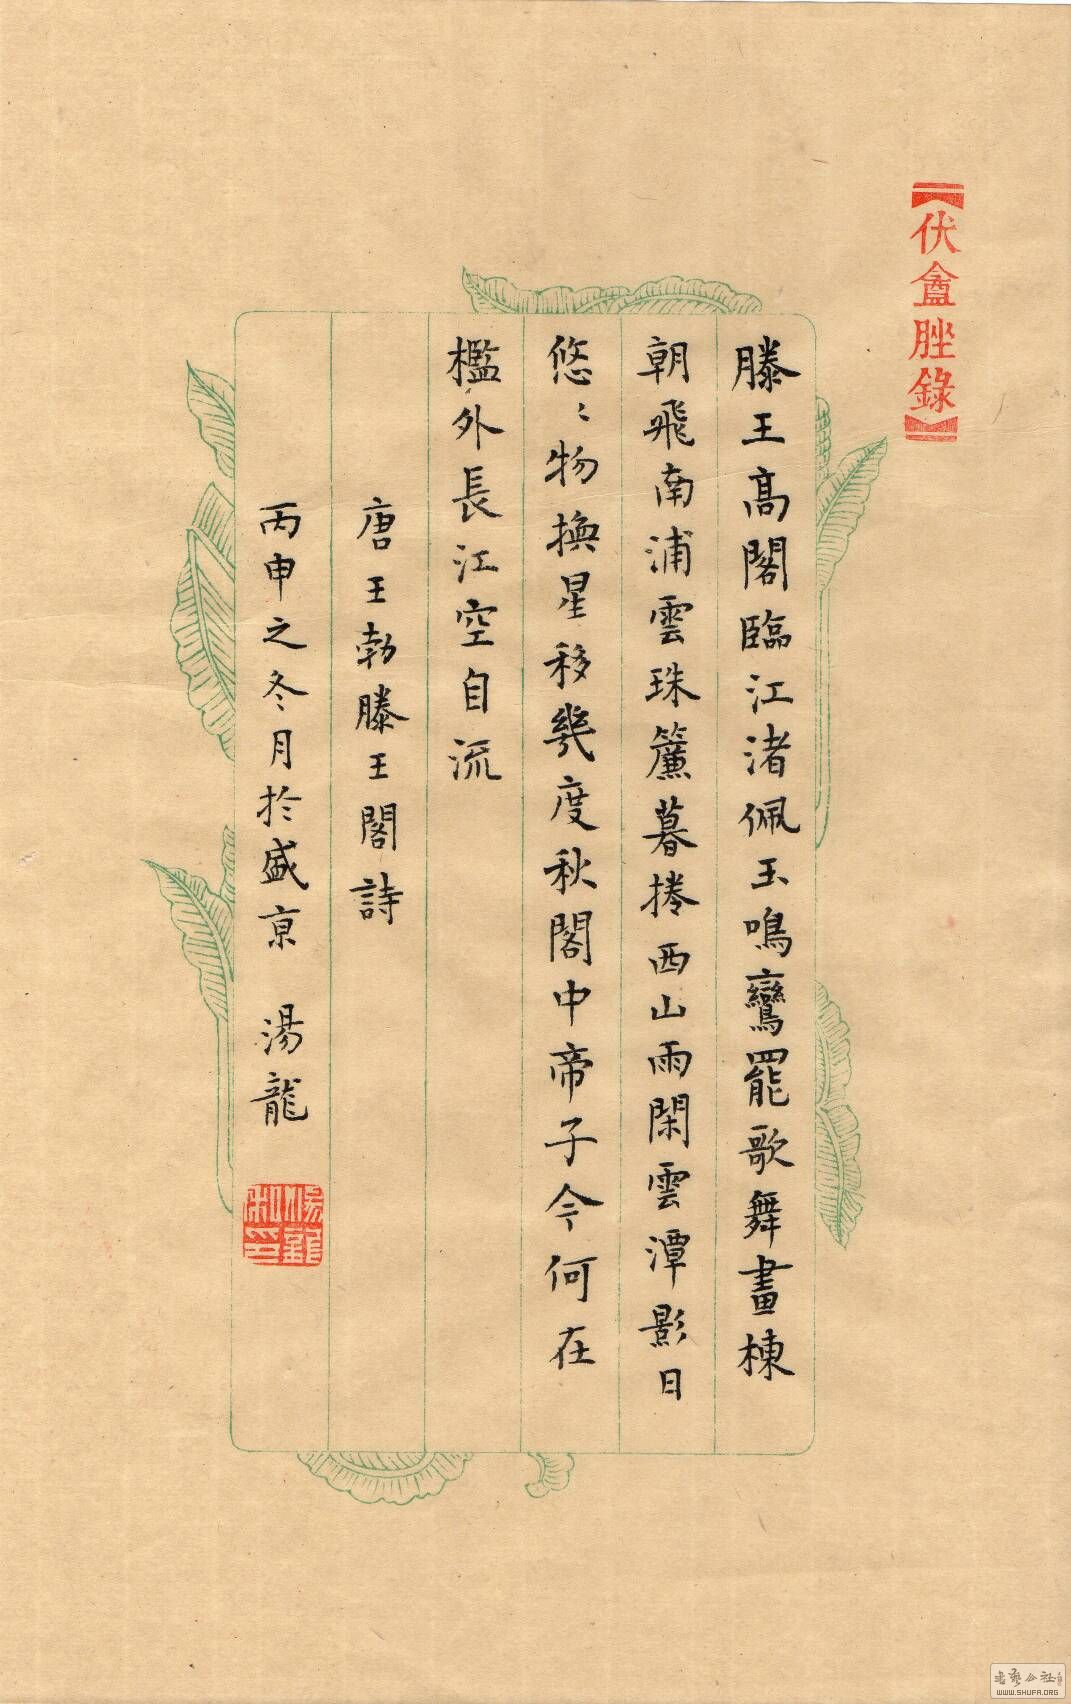 【伏盦脞錄】
滕王高閣臨江渚佩玉鳴鸞罷歌舞畫棟
朝飛南浦雲珠簾暮捲西山雨閑雲潭影日
悠〻物換星移幾度秋閣中帝子今何在
檻外長江空自流
唐王勃滕王閣詩
丙申之冬月於盛京 湯龍
湯龍私印
書藝公社
WWW.SHUFA.ORG